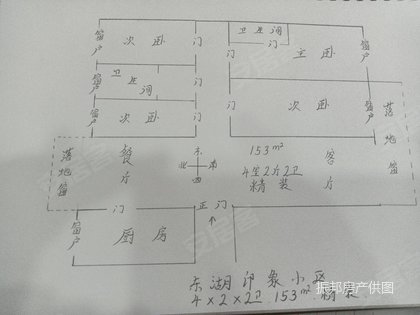 卫生间
窗户 次卧 门 门 门 主卧 窗户
窗户 卫生间 门
窗户 次卧 门 门 次卧 窗户
落地窗 餐厅 东 153m² 客厅 落地窗
北 南 4室2厅2卫
西 精装
门 正门
窗户 厨房
东湖印象小区
4×2×2卫 153m² 精装
振邦房产供图